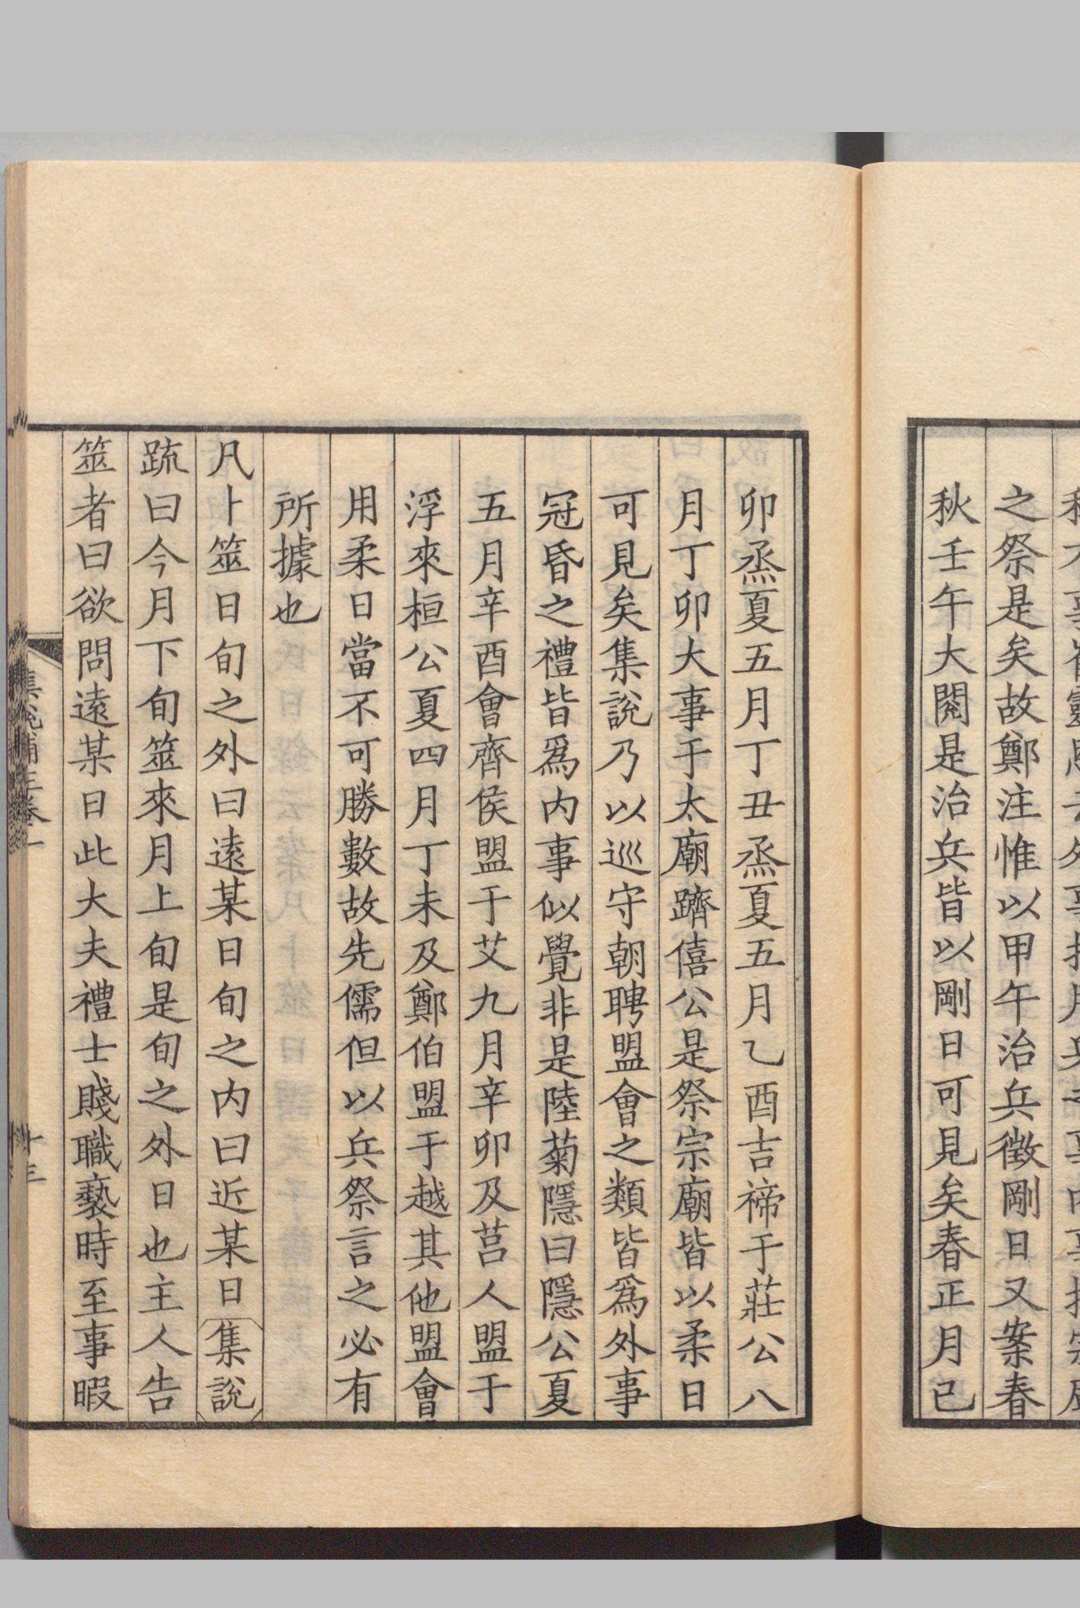 之祭是矣故鄭注惟以甲午治兵徵剛日又案春
秋壬午大閱是治兵皆以剛日可見矣春正月己
卯烝夏五月丁丑烝夏五月乙酉吉禘于莊公八
月丁卯大事于太廟躋僖公是祭宗廟皆以柔日
可見矣集說乃以巡守朝聘盟會之類皆爲外事
冠昏之禮皆爲內事似覺非是陸菊隱曰隱公夏
五月辛酉會齊侯盟于艾九月辛卯及莒人盟于
浮來桓公夏四月丁未及鄭伯盟于越其他盟會
用柔日當不可勝數故先儒但以兵祭言之必有
所據也
凡卜筮日旬之外曰遠某日旬之内曰近某日集說
疏曰今月下旬筮來月上旬是旬之外日也主人告
筮者曰欲問遠某日此大夫禮士賤職褻時至事暇